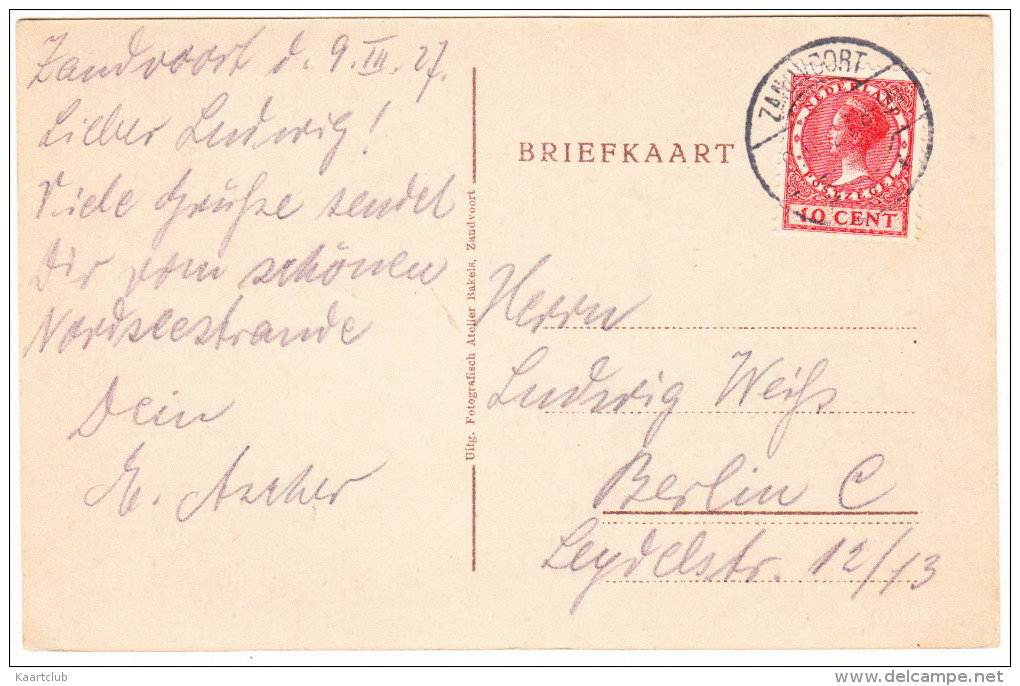 Zandvoort d. 9. III. 27.
Lieber Ludwig!
Viele Grüße sendet
Dir vom schönen
Nordseestrande
Dein
E. Ascher
Uitg. Fotografisch Atelier Bakels, Zandvoort
BRIEFKAART
ZANDVOORT
NEDERLAND
POSTZEGEL
10 CENT
Herrn
Ludwig Weiß
Berlin C
Seydelstr. 12/13
Kaartclub
www.delcampe.net